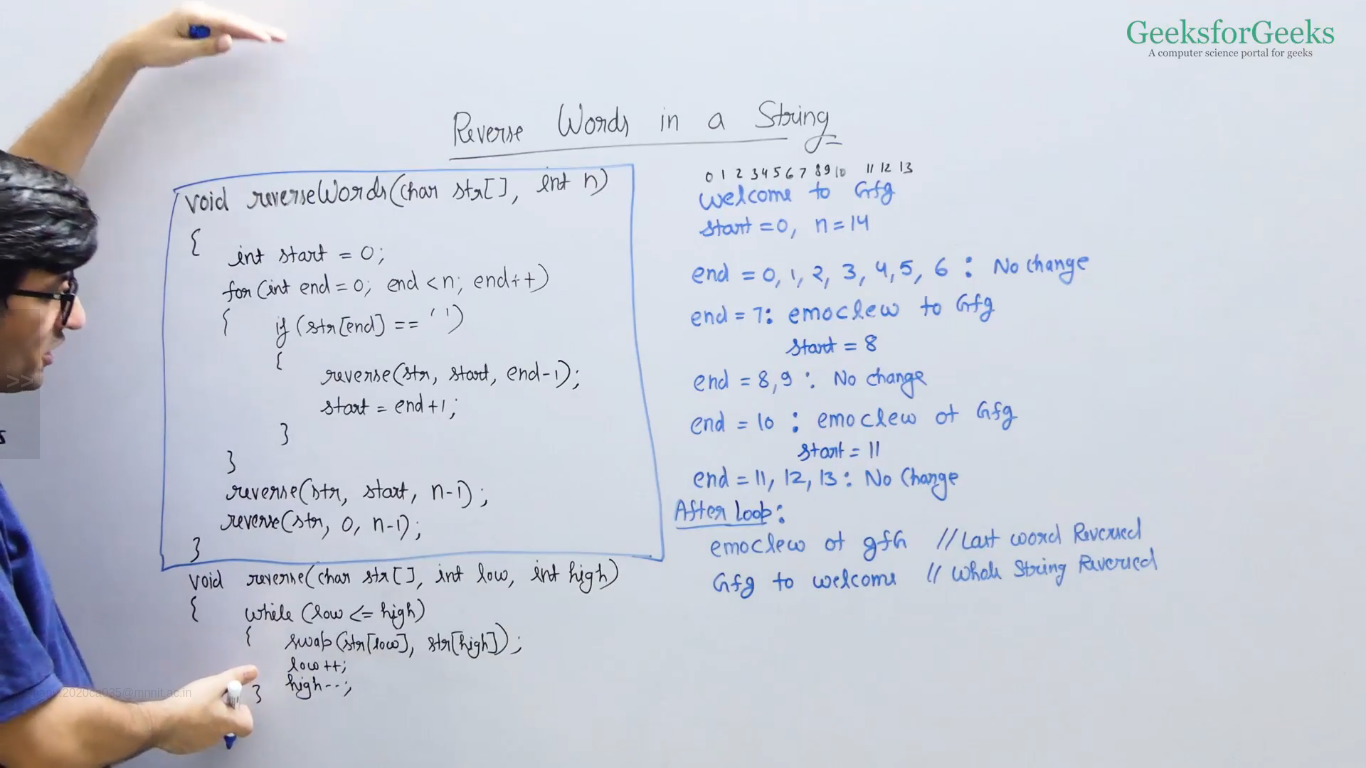 GeeksforGeeks
A computer science portal for geeks
Reverse Words in a String
void reverseWords(char str[], int n)
{
int start = 0;
for(int end = 0; end < n; end++)
{
if (str[end] == ' ')
{
reverse(str, start, end-1);
start = end+1;
}
}
reverse(str, start, n-1);
reverse(str, 0, n-1);
}
void reverse(char str[], int low, int high)
{
while (low <= high)
{
swap(str[low], str[high]);
low++;
high--;
}
0 1 2 3 4 5 6 7 8 9 10 11 12 13
welcome to Gfg
start = 0, n = 14
end = 0, 1, 2, 3, 4, 5, 6 : No change
end = 7: emoclew to Gfg
start = 8
end = 8, 9 : No change
end = 10 : emoclew ot Gfg
start = 11
end = 11, 12, 13 : No Change
After Loop:
emoclew ot gfG // Last word Reversed
Gfg to welcome // Whole String Reversed